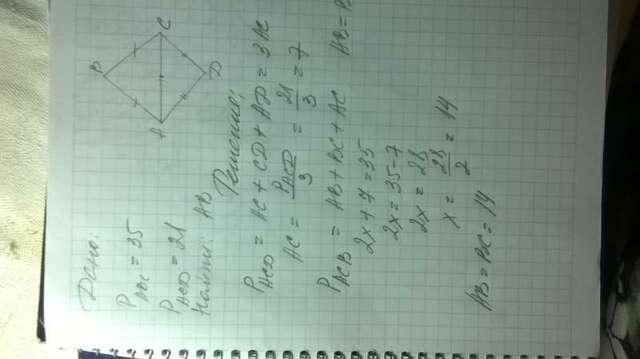 Дано:
P ABC = 35
P ACD = 21
Найти: AB
B
C
A
D
Решение:
P ACD = AC + CD + AD = 3AC
AC = P ACD / 3 = 21 / 3 = 7
P ACB = AB + BC + AC
AB =
2x + 7 = 35
2x = 35 - 7
2x = 28
x = 28 / 2 = 14
AB = BC = 14